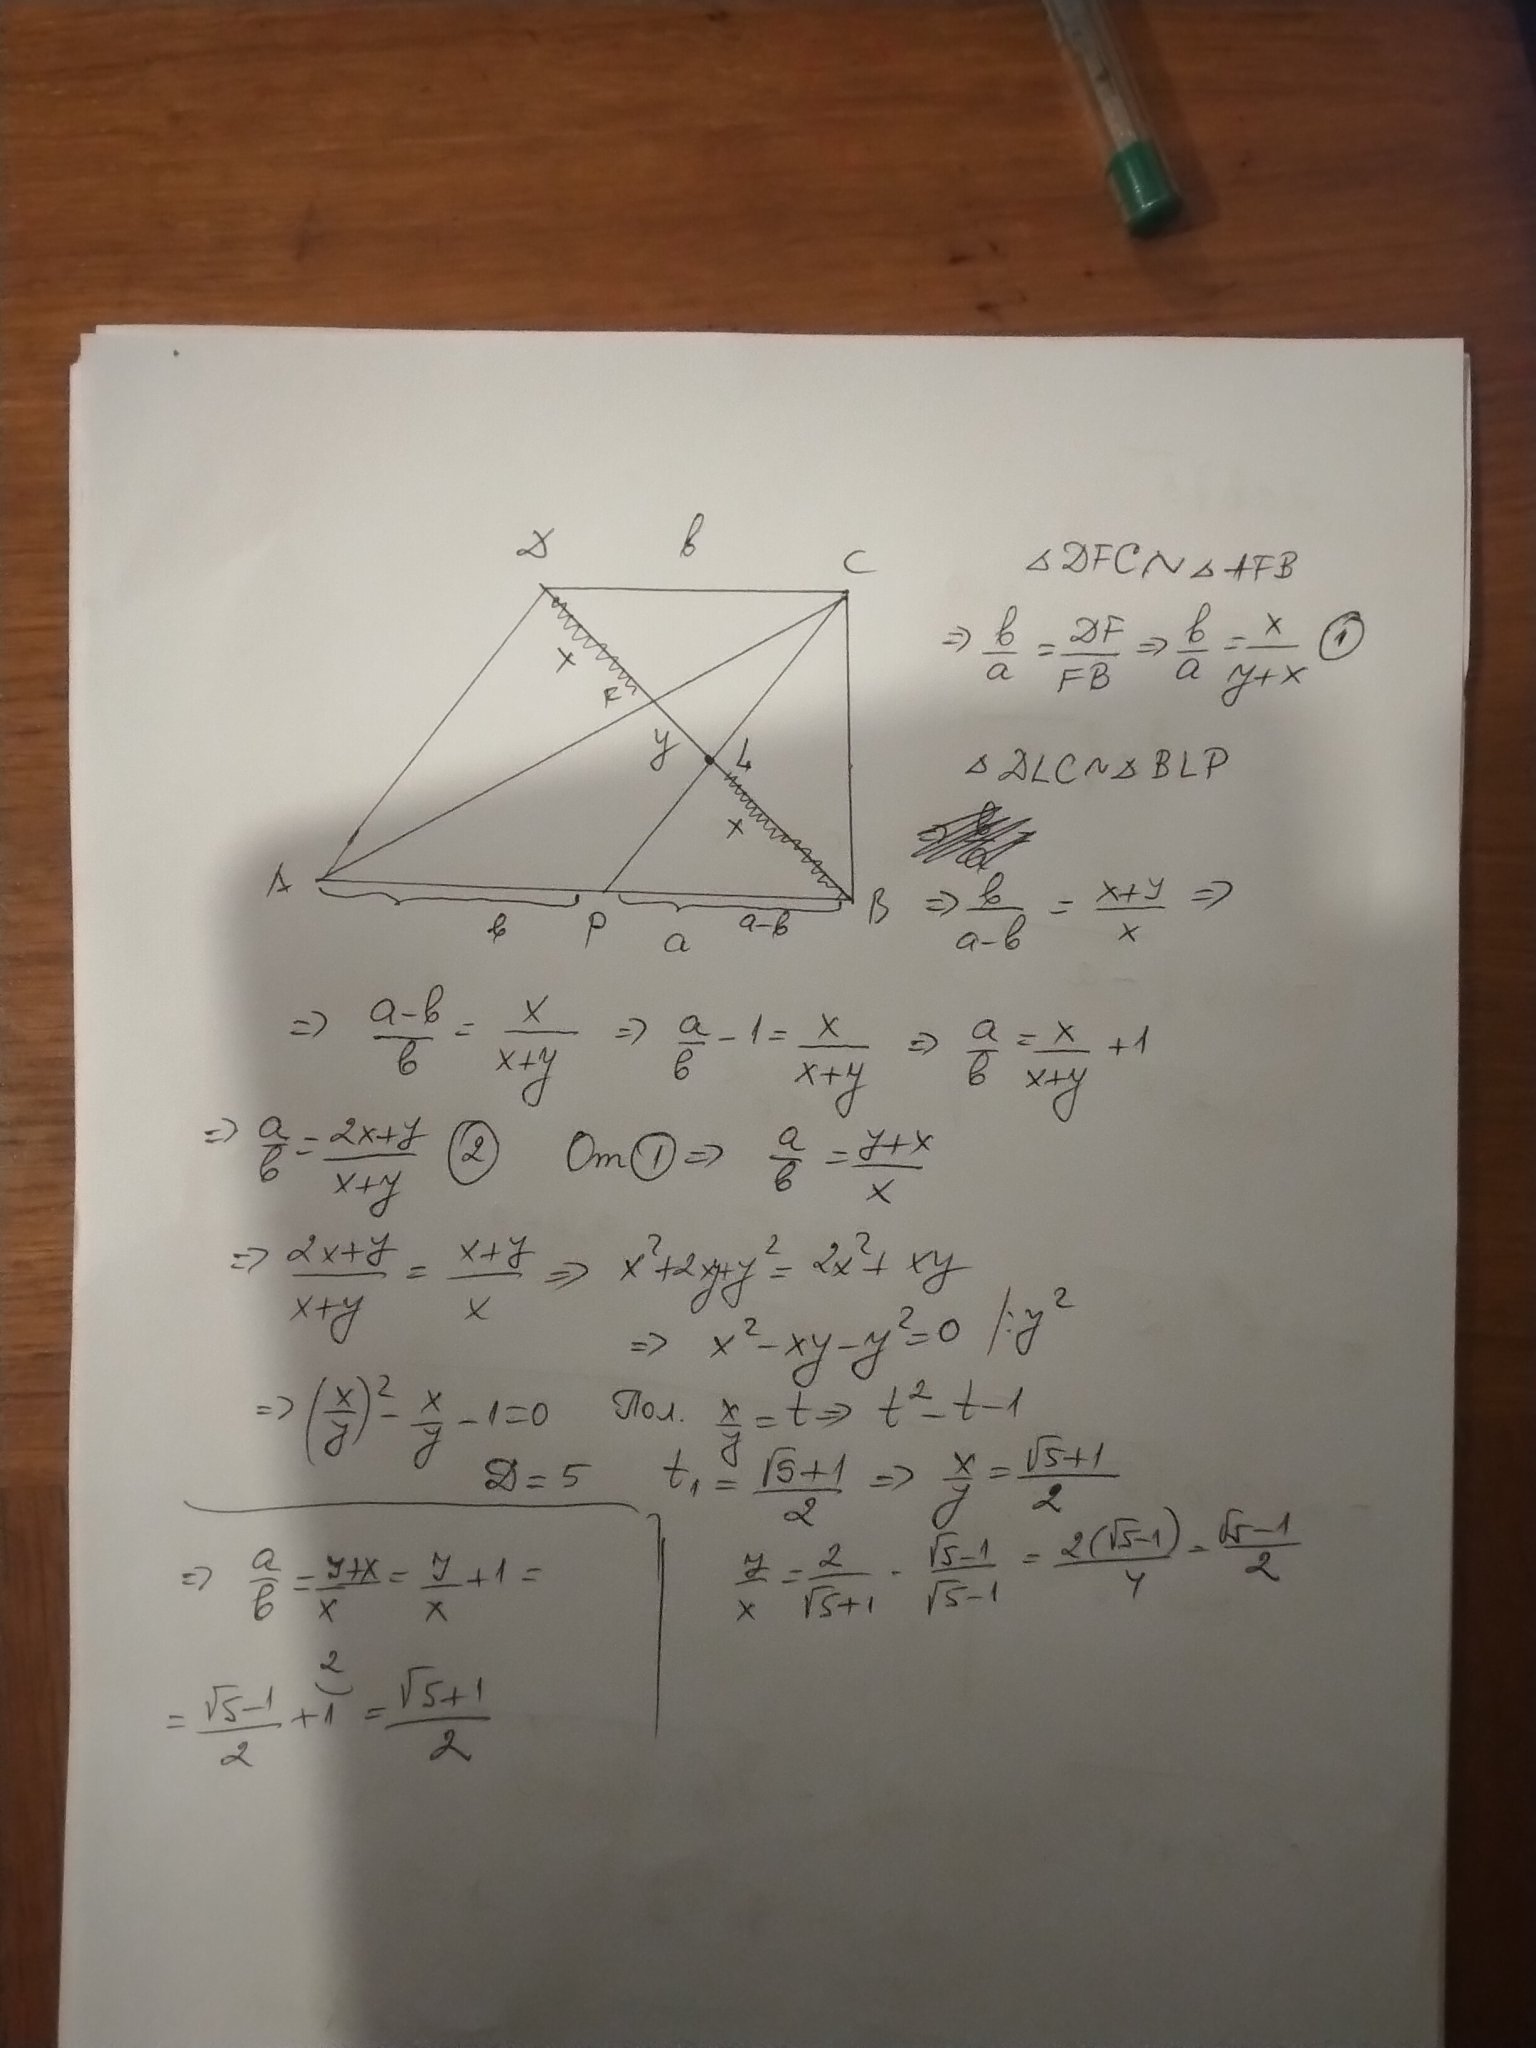 D b C
x F
y L
x
A b P a a-b B
△DFC~△AFB
⇒ b/a = DF/FB ⇒ b/a = x/(y+x) ①
△DLC~△BLP
⇒ b/(a-b) = (x+y)/x ⇒
⇒ (a-b)/b = x/(x+y) ⇒ a/b - 1 = x/(x+y) ⇒ a/b = x/(x+y) + 1
⇒ a/b = (2x+y)/(x+y) ② От ① ⇒ a/b = (y+x)/x
⇒ (2x+y)/(x+y) = (x+y)/x ⇒ x²+2xy+y² = 2x²+xy
⇒ x²-xy-y²=0 /:y²
⇒ (x/y)² - x/y - 1=0 Пол. x/y = t ⇒ t²-t-1
D=5 t₁ = (√5+1)/2 ⇒ x/y = (√5+1)/2
⇒ a/b = (y+x)/x = y/x + 1 =
= (√5-1)/2 + 1 = (√5+1)/2
2
y/x = 2/(√5+1) · (√5-1)/(√5-1) = 2(√5-1)/4 = (√5-1)/2